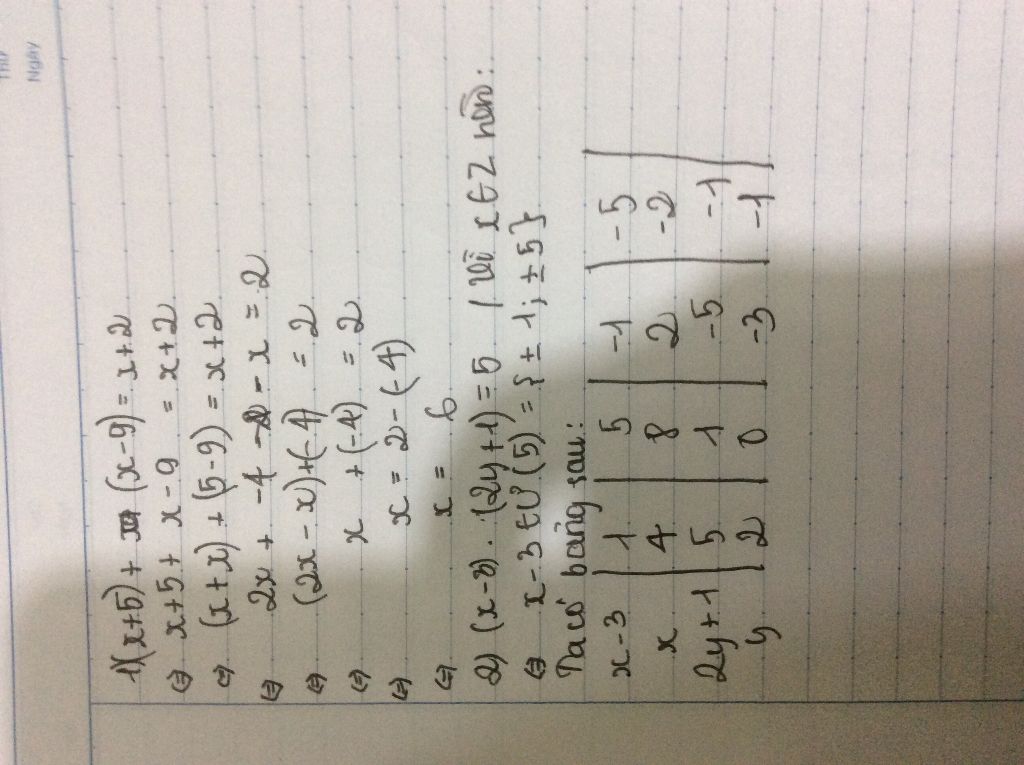 Thứ
Ngày
1) (x+5) + (x-9) = x+2
⇔ x+5 + x-9 = x+2
⇔ (x+x) + (5-9) = x+2
⇔ 2x + -4 - x = 2
⇔ (2x-x)+(-4) = 2
⇔ x +(-4) = 2
⇔ x = 2-(-4)
⇔ x = 6
2) (x-3).(2y+1)=5 / Vì x∈Z nên:
⇔ x-3 ∈ Ư(5) = {±1; ±5}
Ta có bảng sau:
x-3 | 1 | 5 | -1 | -5 |
x | 4 | 8 | 2 | -2 |
2y+1 | 5 | 1 | -5 | -1 |
y | 2 | 0 | -3 | -1 |